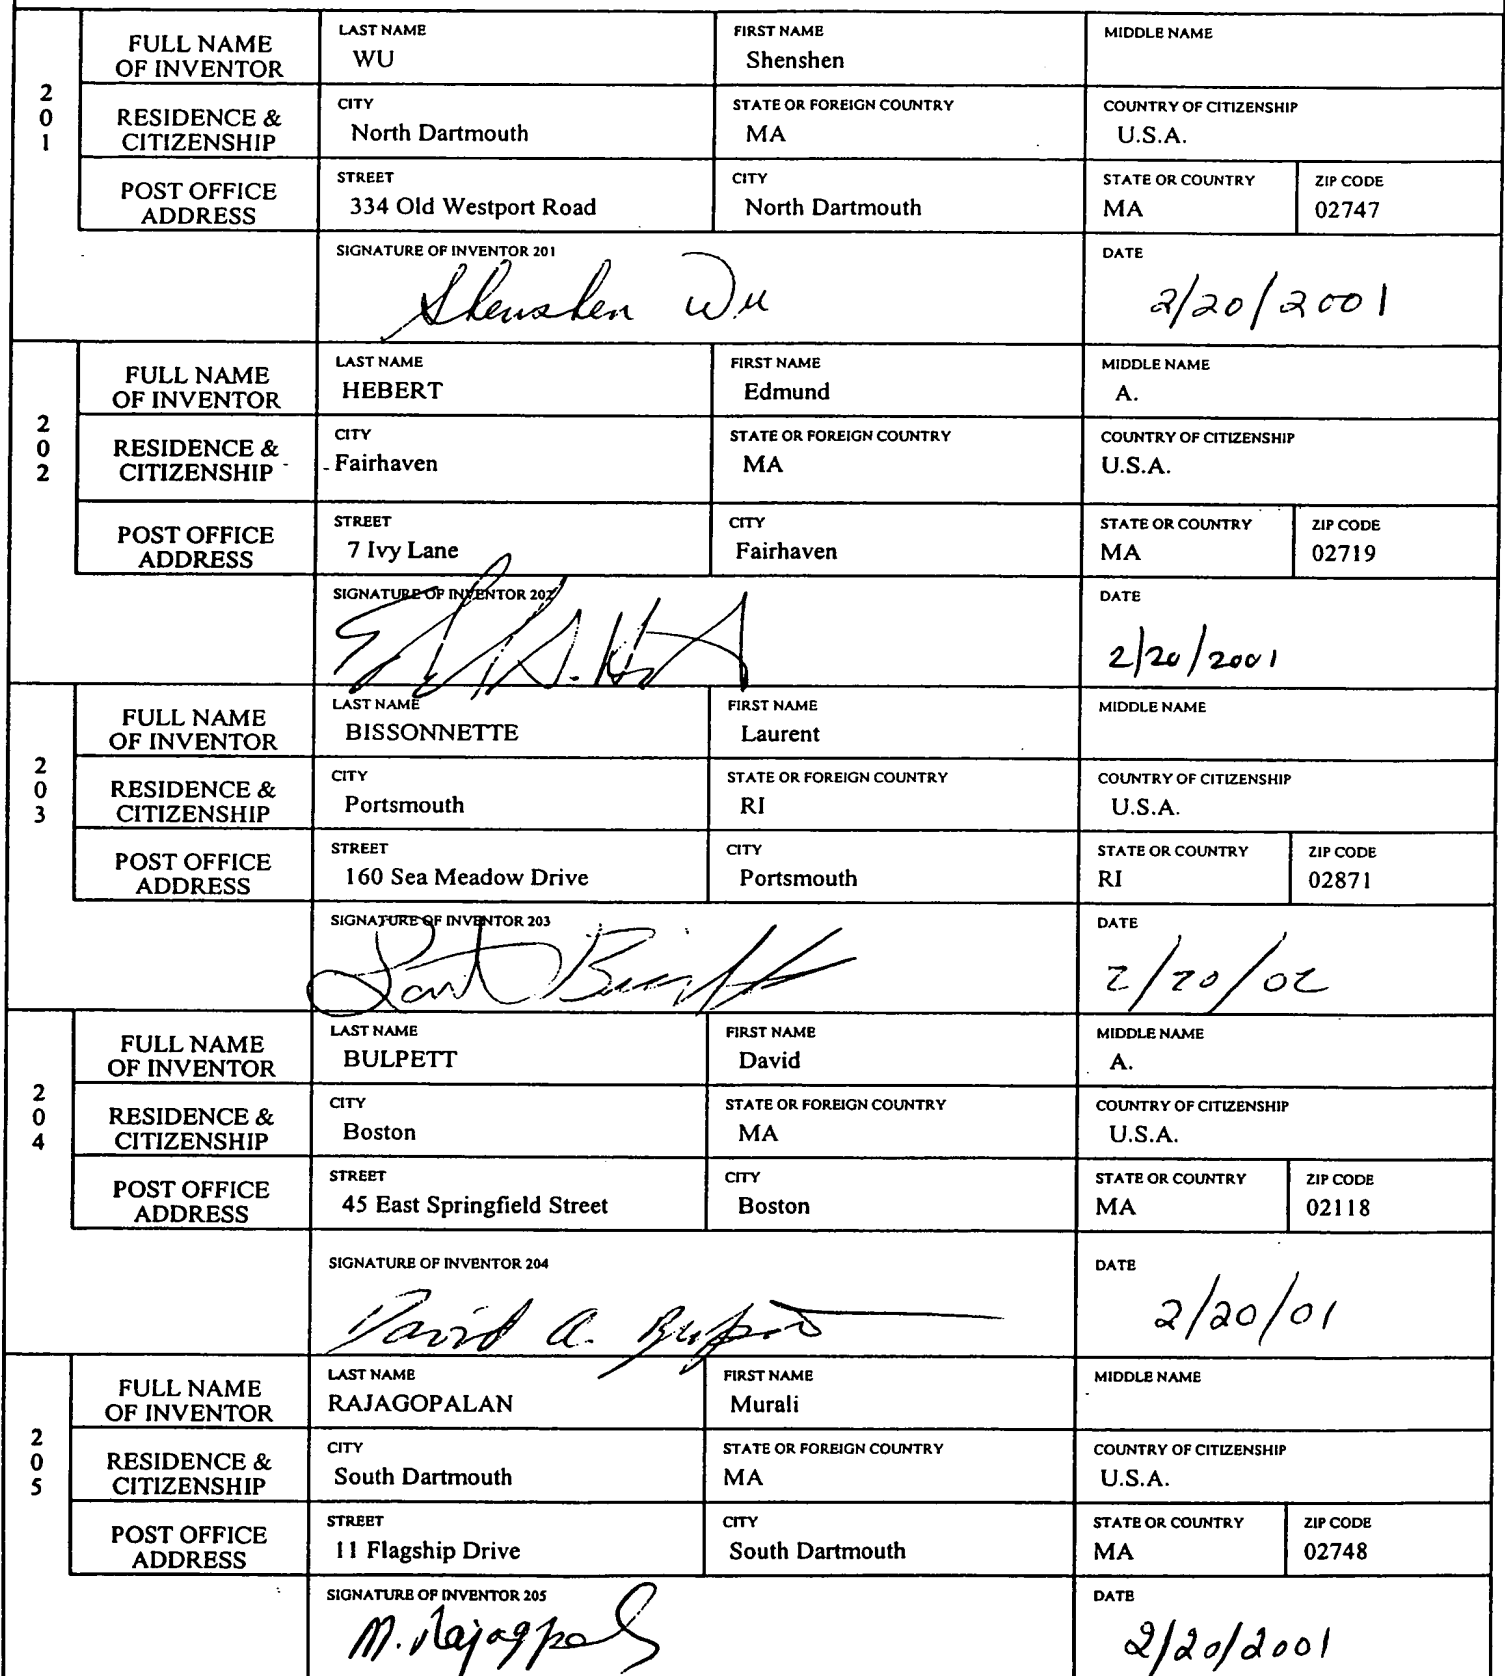 201
FULL NAME OF INVENTOR
LAST NAME WU
FIRST NAME Shenshen
MIDDLE NAME
RESIDENCE & CITIZENSHIP
CITY North Dartmouth
STATE OR FOREIGN COUNTRY MA
COUNTRY OF CITIZENSHIP U.S.A.
POST OFFICE ADDRESS
STREET 334 Old Westport Road
CITY North Dartmouth
STATE OR COUNTRY MA
ZIP CODE 02747
SIGNATURE OF INVENTOR 201 Shenshen Wu
DATE 2/20/2001
202
FULL NAME OF INVENTOR
LAST NAME HEBERT
FIRST NAME Edmund
MIDDLE NAME A.
RESIDENCE & CITIZENSHIP
CITY Fairhaven
STATE OR FOREIGN COUNTRY MA
COUNTRY OF CITIZENSHIP U.S.A.
POST OFFICE ADDRESS
STREET 7 Ivy Lane
CITY Fairhaven
STATE OR COUNTRY MA
ZIP CODE 02719
SIGNATURE OF INVENTOR 202
DATE 2/20/2001
203
FULL NAME OF INVENTOR
LAST NAME BISSONNETTE
FIRST NAME Laurent
MIDDLE NAME
RESIDENCE & CITIZENSHIP
CITY Portsmouth
STATE OR FOREIGN COUNTRY RI
COUNTRY OF CITIZENSHIP U.S.A.
POST OFFICE ADDRESS
STREET 160 Sea Meadow Drive
CITY Portsmouth
STATE OR COUNTRY RI
ZIP CODE 02871
SIGNATURE OF INVENTOR 203
DATE 2/20/02
204
FULL NAME OF INVENTOR
LAST NAME BULPETT
FIRST NAME David
MIDDLE NAME A.
RESIDENCE & CITIZENSHIP
CITY Boston
STATE OR FOREIGN COUNTRY MA
COUNTRY OF CITIZENSHIP U.S.A.
POST OFFICE ADDRESS
STREET 45 East Springfield Street
CITY Boston
STATE OR COUNTRY MA
ZIP CODE 02118
SIGNATURE OF INVENTOR 204 David A.
DATE 2/20/01
205
FULL NAME OF INVENTOR
LAST NAME RAJAGOPALAN
FIRST NAME Murali
MIDDLE NAME
RESIDENCE & CITIZENSHIP
CITY South Dartmouth
STATE OR FOREIGN COUNTRY MA
COUNTRY OF CITIZENSHIP U.S.A.
POST OFFICE ADDRESS
STREET 11 Flagship Drive
CITY South Dartmouth
STATE OR COUNTRY MA
ZIP CODE 02748
SIGNATURE OF INVENTOR 205 M.
DATE 2/20/2001